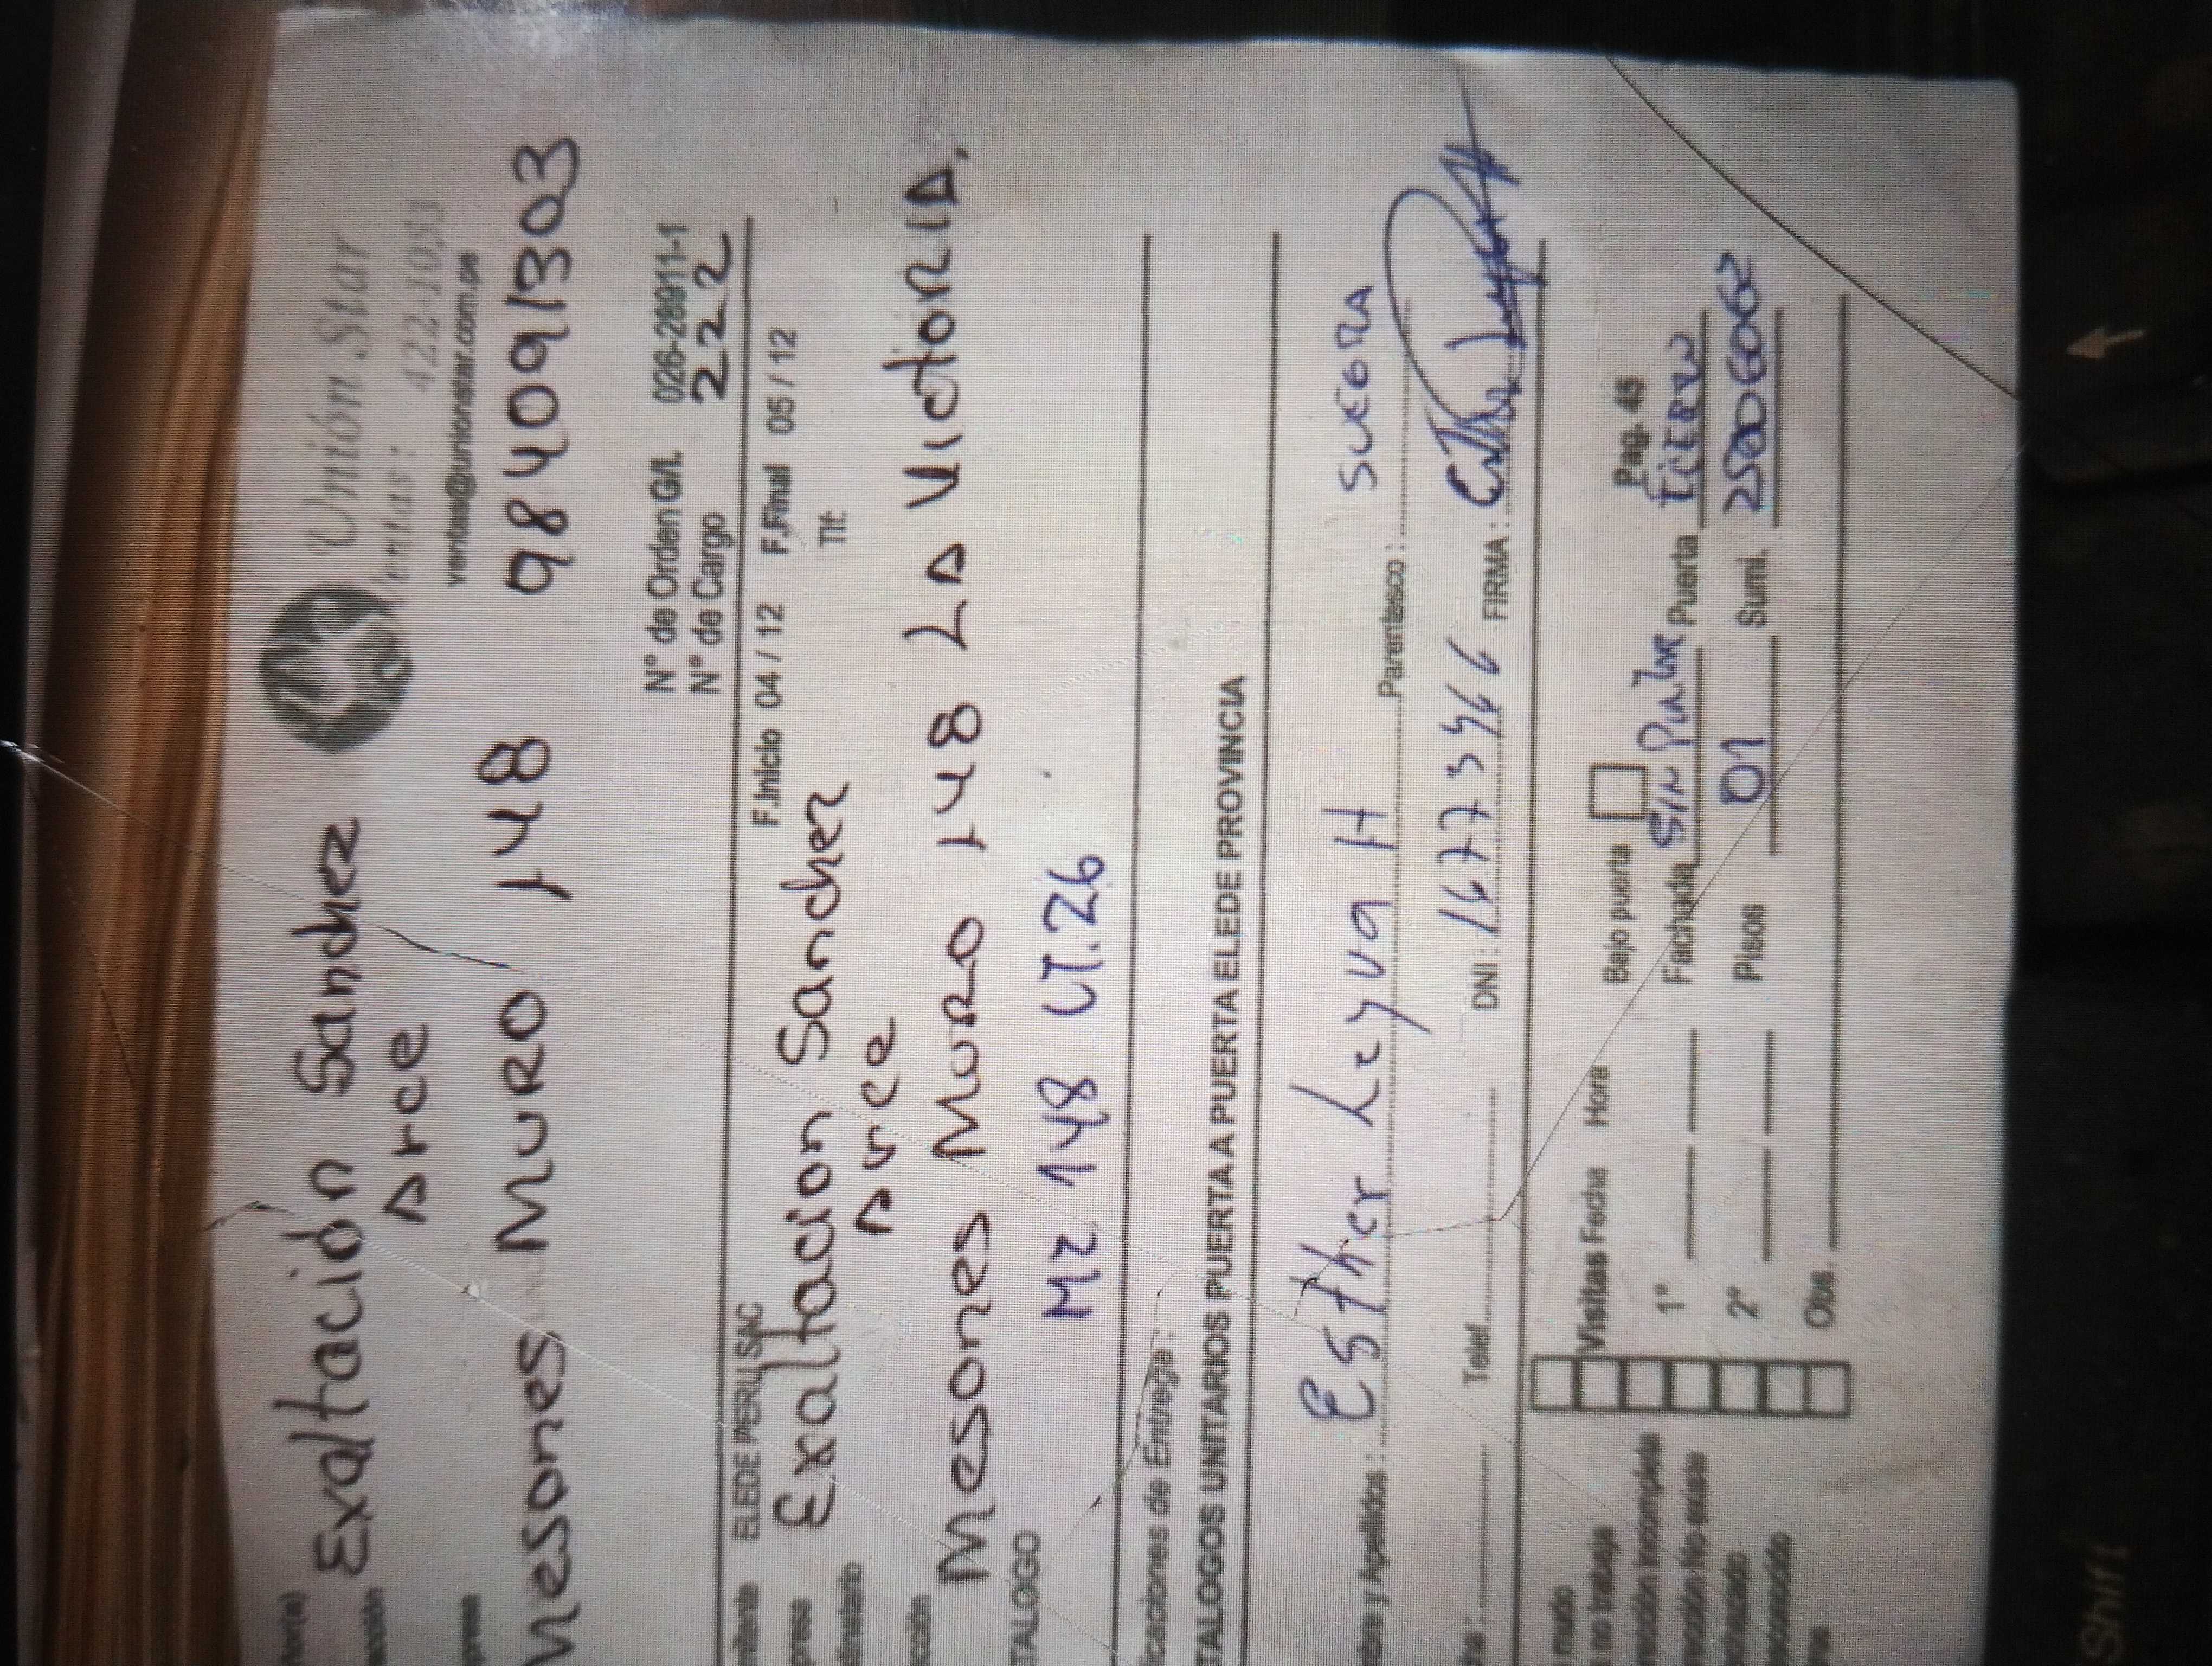 Unión Star
Exaltación Sanchez
Arce
422-1053
ventas@unionstar.com.pe
Mesones MURO 148 984091303
N° de Orden G/L 026-28911-1
N° de Cargo 222
ELEDE PERU SAC F.Inicio 04 / 12 F.Final 05 / 12
Exaltacion Sanchez Tlf:
Arce
Mesones Muro 148 LA VICTORIA.
TALOGO Mz 148 LT.26
ficaciones de Entrega :
TALOGOS UNITARIOS PUERTA A PUERTA ELEDE PROVINCIA
mbre y Apellidos : Esther Leyva H Parentesco : SUEGRA
Telef. DNI : FIRMA :
mudo
no trabaja Visitas Fecha Hora Bajo puerta Pag. 45
rección incompleta 1° Fachada SIN PINTAR Puerta FIERRO
rección No existe
2° Pisos 01 Sumi.
Obs.
Shift